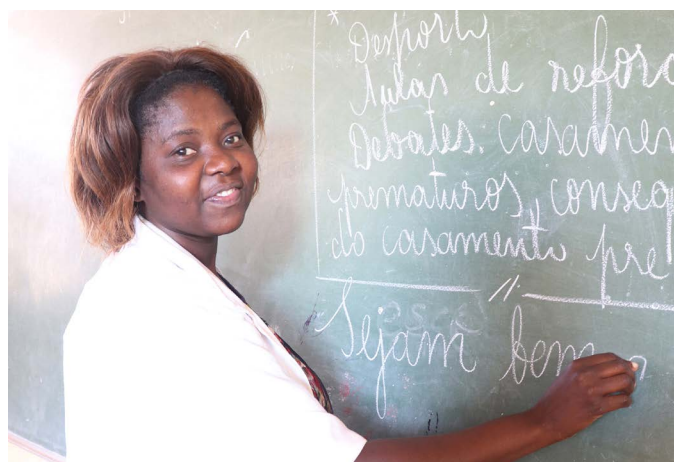 * Desporto
Aulas de reforç
Debates. casamen
prematuros, conseq
do casamento pre
Sejam bem